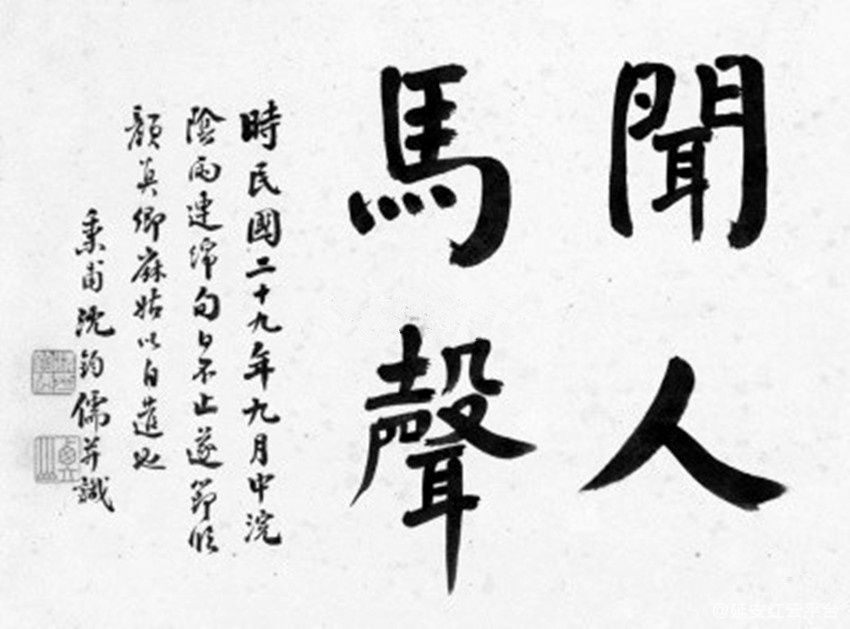 聞人
馬聲
時民國二十九年九月中浣
陰雨連綿旬日不止遂節臨
顏真卿麻姑以自遣也
秉甫沈鈞儒并識
@延安红云平台